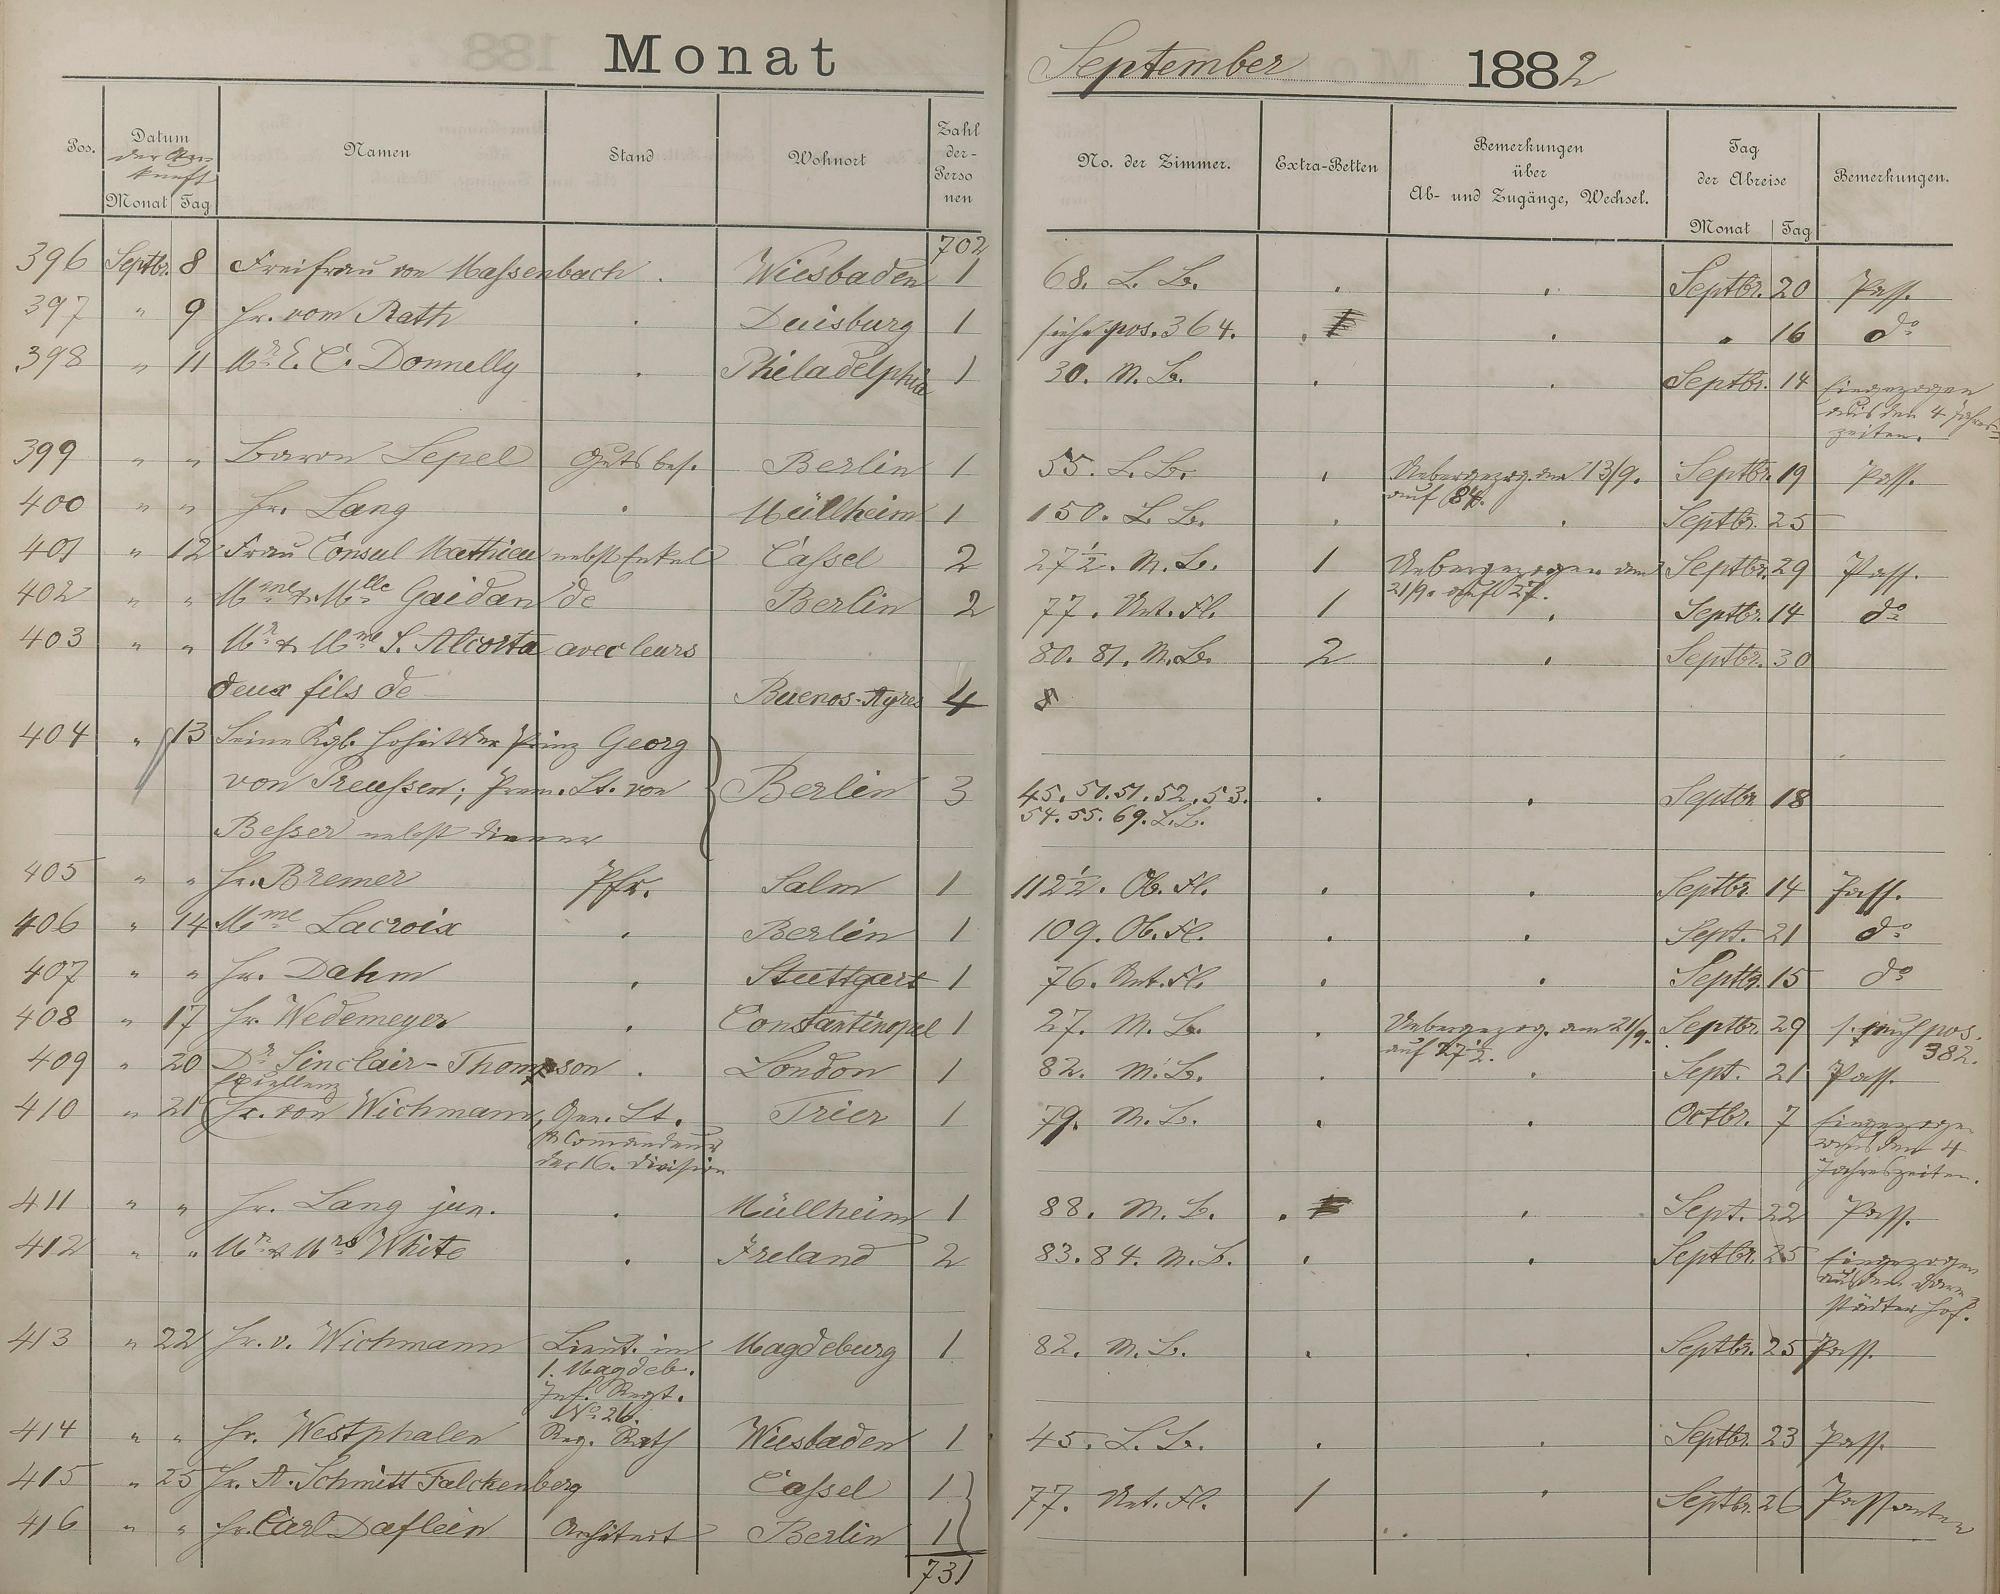 Monat September 1882
Pos. Datum der Ankunft Monat Tag Namen Stand Wohnort Zahl der Personen No. der Zimmer. Extra-Betten Bemerkungen über Ab- und Zugänge, Wechsel. Tag der Abreise Monat Tag Bemerkungen.
702
396 Septbr. 8 Freifrau von Massenbach . Wiesbaden 1 68. L. B. . . Septbr. 20 Pass.
397 " 9 Hr. vom Rath . Duisburg 1 siehe pos. 364. . . " 16 do
398 " 11 Mr. E. C. Donnelly . Philadelphia 1 30. M. B. . . Septbr. 14 Eingezogen
aus den 4 Jahres-
zeiten.
399 " " Baron Lepel Gutsbes. Berlin 1 55. L. B. . Uebergezog. am 13/9. Septbr. 19 Pass.
auf 84.
400 " " Hr. Lang . Müllheim 1 150. L. B. . . Septbr. 25
401 " 12 Frau Consul Mathieu nebst Enkel Cassel 2 27½. M. B. 1 Uebergezogen am Septbr. 29 Pass.
21/9. auf 27.
402 " " Mme & Mlle Gaidan de Berlin 2 77. Unt. Fl. 1 . Septbr. 14 do
403 " " Mr & Mme S. Alcorta avec leurs 80. 81. M. B. 2 . Septbr. 30
deux fils de Buenos-Ayres 4 8
404 " 13 Seine Kgl. Hoheit der Prinz Georg
von Preussen; Prem. Lt. von Berlin 3 45. 50. 51. 52. 53. . . Septbr. 18
54. 55. 69. L. B.
Besser nebst Diener
405 " " Hr. Bremer Pfr. Salm 1 112½. Ob. Fl. . . Septbr. 14 Pass.
406 " 14 Mme Lacroix . Berlin 1 109. Ob. Fl. . . Sept. 21 do
407 " " Hr. Dahm . Stuttgart 1 76. Unt. Fl. . . Septbr. 15 do
408 " 17 Hr. Wedemeyer . Constantinopel 1 27. M. B. . Uebergezog. am 21/9. Septbr. 29 s. auch pos.
auf 27½. 382.
409 " 20 Dr Sinclair-Thompson . London 1 82. M. B. . . Sept. 21 Pass.
Excellenz
410 " 21 Hr. von Wichmann, Gen. Lt. Trier 1 79. M. B. . . Octbr. 7 Eingezogen
& Comandeur aus den 4
der 16. Division Jahreszeiten.
411 " " Hr. Lang jun. . Müllheim 1 88. M. B. . . Sept. 22 Pass.
412 " " Mr & Mrs White . Ireland 2 83. 84. M. B. . . Septbr. 25 Eingezogen
aus dem Darm-
städter Hof.
413 " 22 Hr. v. Wichmann Lieut. im Magdeburg 1 82. M. B. . . Septbr. 25 Pass.
1. Magdeb.
Inf. Regt.
No 26.
414 " " Hr. Westphalen Reg. Rath Wiesbaden 1 45. L. B. . . Septbr. 23 Pass.
415 " 25 Hr. A. Schmitt Falckenberg Cassel 1 77. Unt. Fl. 1 . Septbr. 26 Passanten
416 " " Hr. Carl Daflein Architect Berlin 1
731